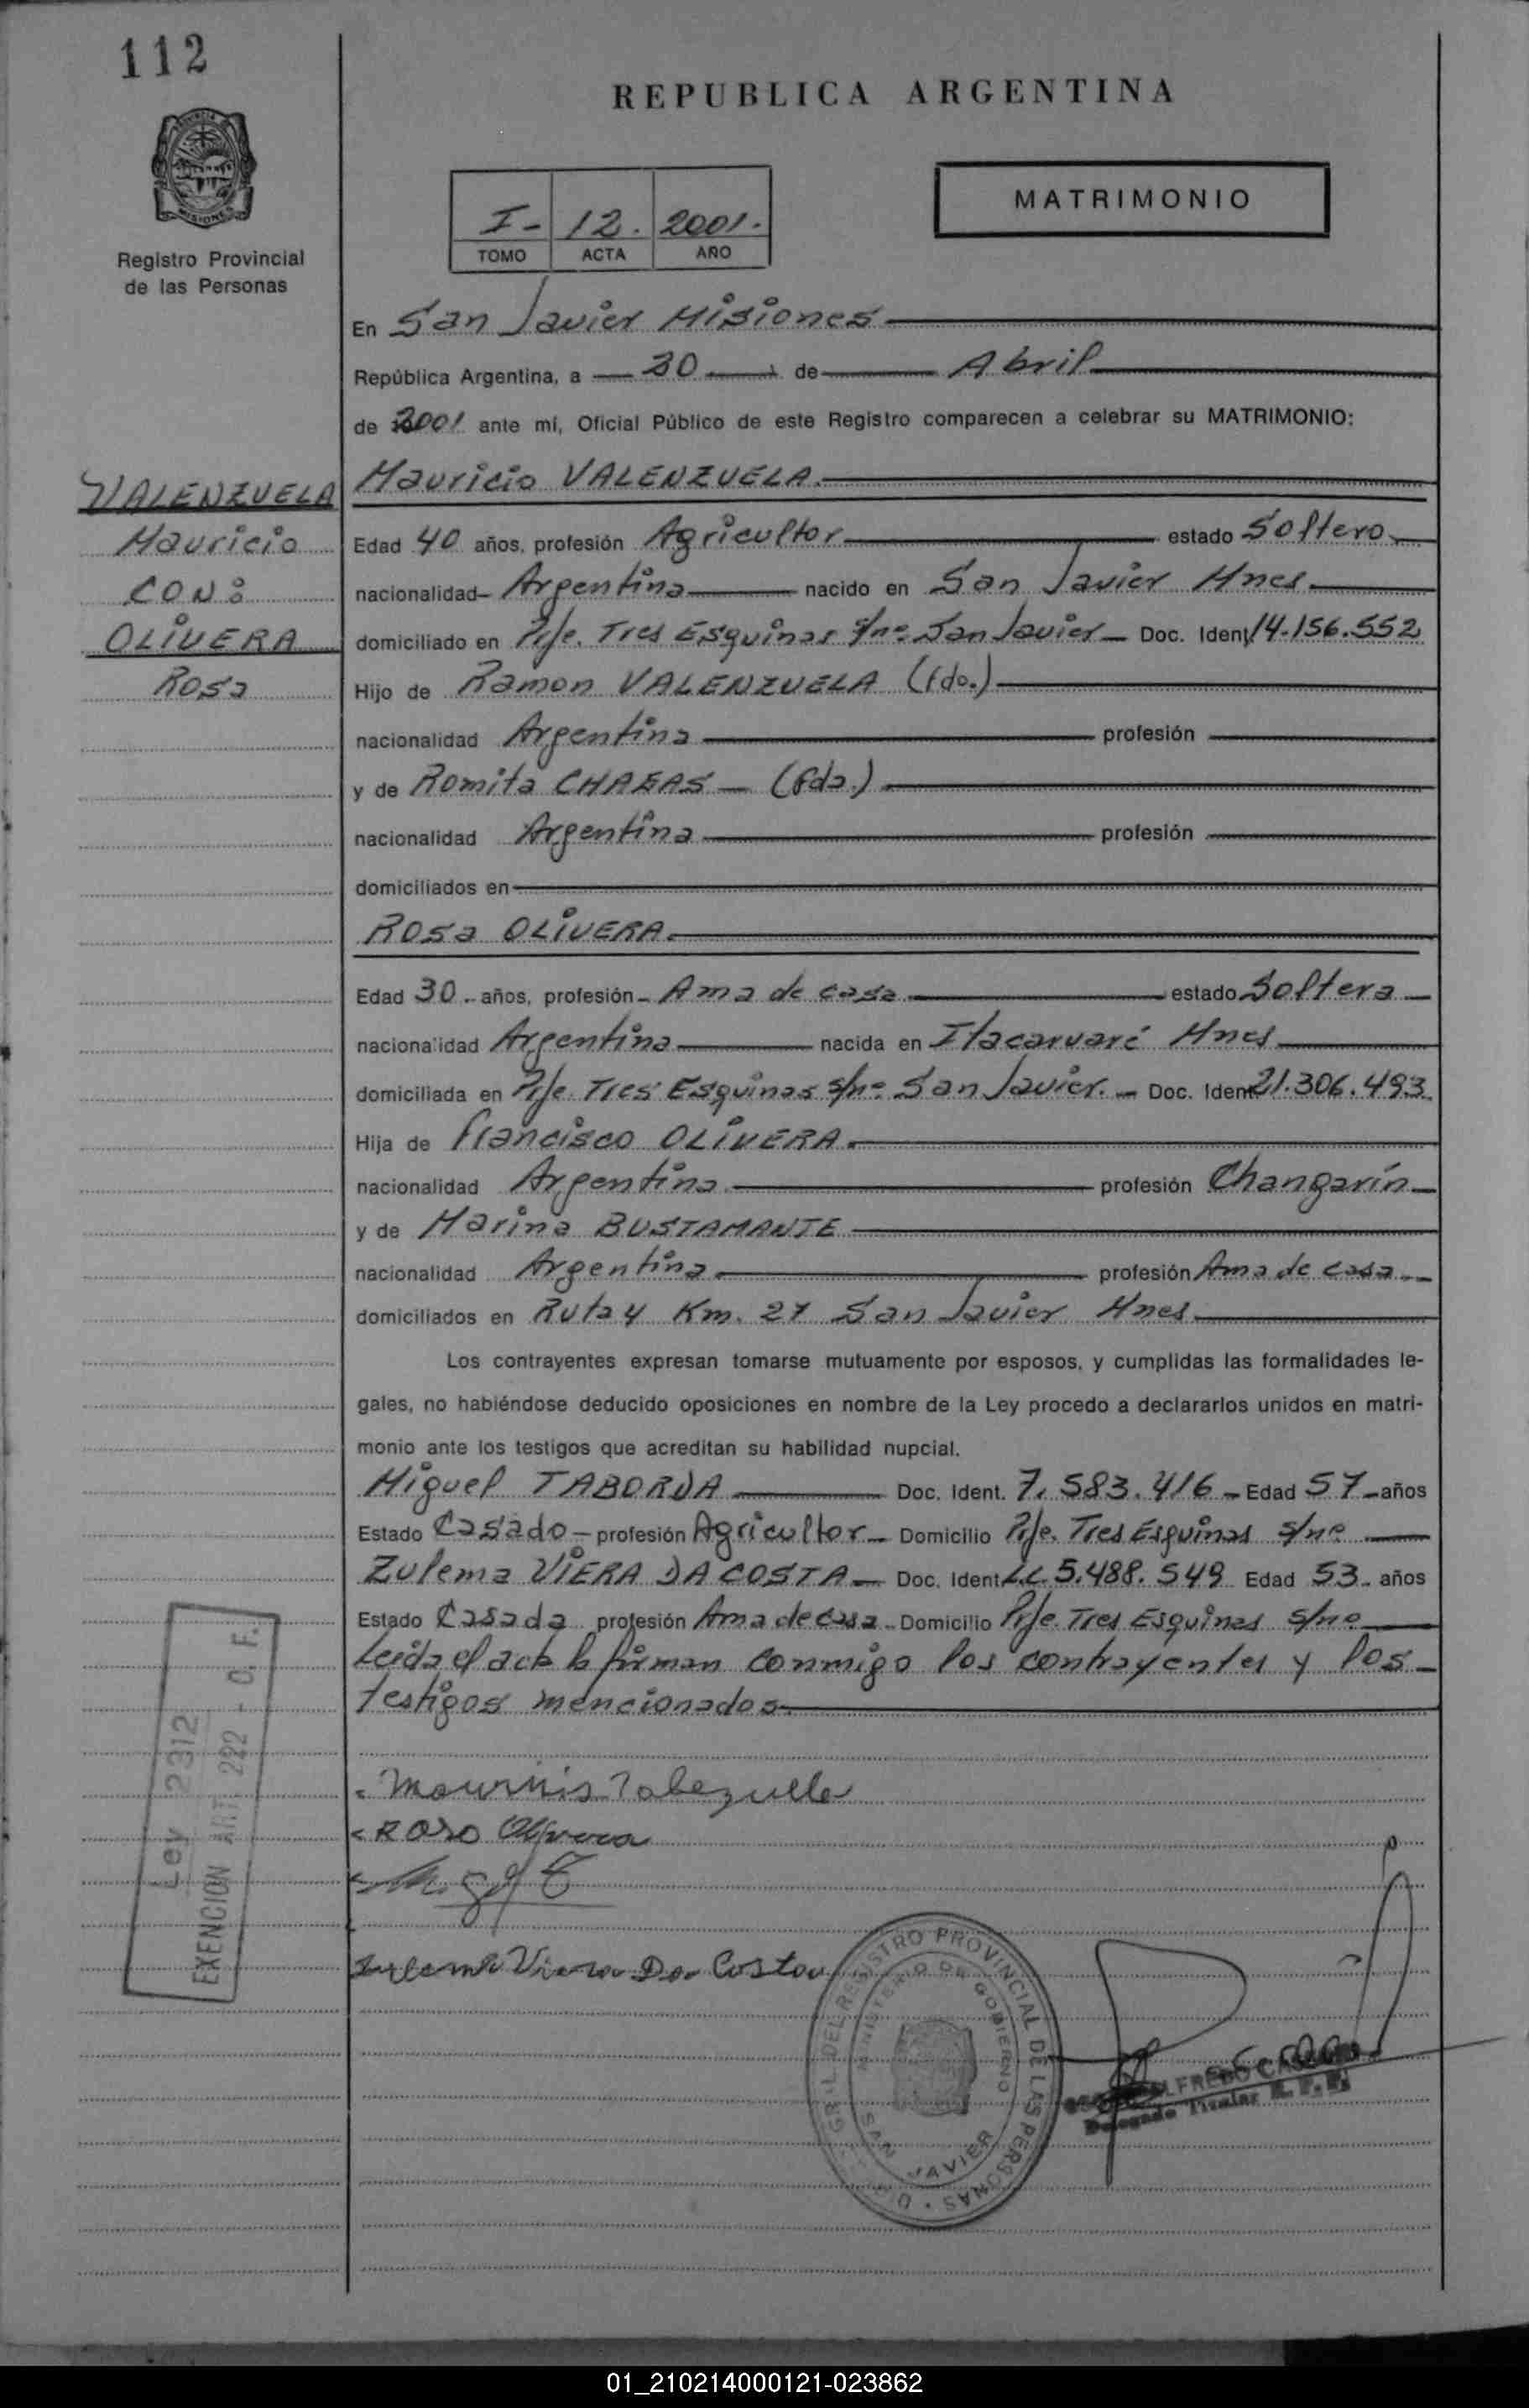 112
REPUBLICA ARGENTINA
MATRIMONIO
I- 12. 2001.
TOMO ACTA AÑO
Registro Provincial
de las Personas
En San Javier Misiones
República Argentina, a 30 de Abril
de 2001 ante mí, Oficial Público de este Registro comparecen a celebrar su MATRIMONIO:
VALENZUELA
Mauricio
CON:
OLIVERA
Rosa
Mauricio VALENZUELA.
Edad 40 años, profesión Agricultor estado Soltero
nacionalidad Argentina nacido en San Javier Mnes
domiciliado en Pje. Tres Esquinas s/nº San Javier Doc. Ident. 14.156.552
Hijo de Ramon VALENZUELA (fdo.)
nacionalidad Argentina profesión
y de Romita (fda.)
nacionalidad Argentina profesión
domiciliados en
Rosa OLIVERA.
Edad 30 años, profesión Ama de casa estado Soltera
nacionalidad Argentina nacida en Itacaruaré Mnes
domiciliada en Pje. Tres Esquinas s/nº San Javier. Doc. Ident 21.306.493
Hija de Francisco OLIVERA.
nacionalidad Argentina profesión Changarín
y de Marina BUSTAMANTE
nacionalidad Argentina profesión Ama de casa
domiciliados en Ruta 4 Km. 27 San Javier Mnes
Los contrayentes expresan tomarse mutuamente por esposos, y cumplidas las formalidades le-
gales, no habiéndose deducido oposiciones en nombre de la Ley procedo a declararlos unidos en matri-
monio ante los testigos que acreditan su habilidad nupcial.
Miguel TABORDA Doc. Ident. 7.583.416 Edad 57 años
Estado Casado profesión Agricultor Domicilio Pje. Tres Esquinas s/nº
Zulema VIERA DA COSTA Doc. Ident L.C. 5.488.549 Edad 53 años
Estado Casada profesión Ama de casa Domicilio Pje. Tres Esquinas s/nº
Leida el acta la firman conmigo los contrayentes y los
testigos mencionados
Ley 2312
EXENCION ART. 292 - C. F.
Rosa Olivera
Zulema Viera Da Costa
REGISTRO PROVINCIAL DE LAS PERSONAS
MINISTERIO DE GOBIERNO
SAN JAVIER
ALFREDO
Delegado Titular R. P. P.
01_210214000121-023862